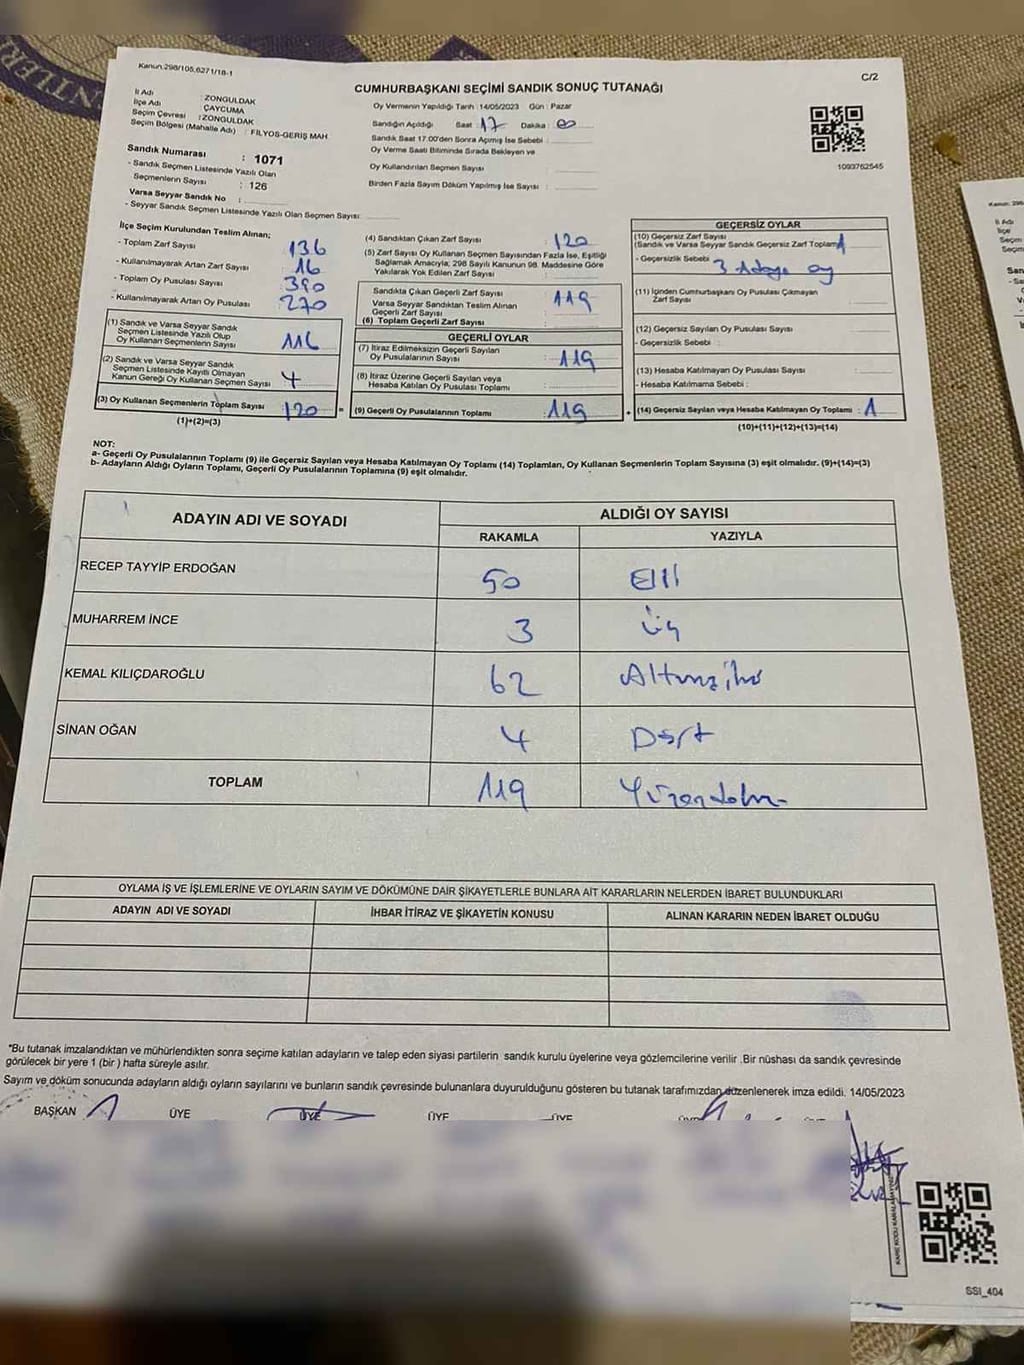 Kanun.298/105,6271/18-1
CUMHURBAŞKANI SEÇİMİ SANDIK SONUÇ TUTANAĞI
C/2
İl Adı : ZONGULDAK
İlçe Adı : ÇAYCUMA
Seçim Çevresi : ZONGULDAK
Seçim Bölgesi (Mahalle Adı) : FİLYOS-GERİŞ MAH
Sandık Numarası : 1071
- Sandık Seçmen Listesinde Yazılı Olan
Seçmenlerin Sayısı : 126
Varsa Seyyar Sandık No :
- Seyyar Sandık Seçmen Listesinde Yazılı Olan Seçmen Sayısı:
Oy Vermenin Yapıldığı Tarih : 14/05/2023 Gün : Pazar
Sandığın Açıldığı Saat : 17 Dakika : 00
Sandık Saat 17.00'den Sonra Açımış İse Sebebi :
Oy Verme Saati Bitiminde Sırada Bekleyen ve
Oy Kullandırılan Seçmen Sayısı :
Birden Fazla Sayım Döküm Yapılmış İse Sayısı :
1093762545
İlçe Seçim Kurulundan Teslim Alınan;
- Toplam Zarf Sayısı : 136
- Kullanılmayarak Artan Zarf Sayısı : 16
- Toplam Oy Pusulası Sayısı : 390
- Kullanılmayarak Artan Oy Pusulası : 270
(1) Sandık ve Varsa Seyyar Sandık
Seçmen Listesinde Yazılı Olup
Oy Kullanan Seçmenlerin Sayısı : 116
(2) Sandık ve Varsa Seyyar Sandık
Seçmen Listesinde Kayıtlı Olmayan
Kanun Gereği Oy Kullanan Seçmen Sayısı : 4
(3) Oy Kullanan Seçmenlerin Toplam Sayısı : 120 =
(1)+(2)=(3)
(4) Sandıktan Çıkan Zarf Sayısı : 120
(5) Zarf Sayısı Oy Kullanan Seçmen Sayısından Fazla İse, Eşitliği
Sağlamak Amacıyla; 298 Sayılı Kanunun 98. Maddesine Göre
Yakılarak Yok Edilen Zarf Sayısı :
Sandıkta Çıkan Geçerli Zarf Sayısı : 119
Varsa Seyyar Sandıktan Teslim Alınan
Geçerli Zarf Sayısı :
(6) Toplam Geçerli Zarf Sayısı :
GEÇERLİ OYLAR
(7) İtiraz Edilmeksizin Geçerli Sayılan
Oy Pusulalarının Sayısı : 119
(8) İtiraz Üzerine Geçerli Sayılan veya
Hesaba Katılan Oy Pusulası Toplamı :
(9) Geçerli Oy Pusulalarının Toplamı : 119 +
GEÇERSİZ OYLAR
(10) Geçersiz Zarf Sayısı
(Sandık ve Varsa Seyyar Sandık Geçersiz Zarf Toplamı) 1
- Geçersizlik Sebebi : 3 Adaya oy
(11) İçinden Cumhurbaşkanı Oy Pusulası Çıkmayan
Zarf Sayısı :
(12) Geçersiz Sayılan Oy Pusulası Sayısı :
- Geçersizlik Sebebi :
(13) Hesaba Katılmayan Oy Pusulası Sayısı :
- Hesaba Katılmama Sebebi :
(14) Geçersiz Sayılan veya Hesaba Katılmayan Oy Toplamı : 1
(10)+(11)+(12)+(13)=(14)
NOT:
a- Geçerli Oy Pusulalarının Toplamı (9) ile Geçersiz Sayılan veya Hesaba Katılmayan Oy Toplamı (14) Toplamları, Oy Kullanan Seçmenlerin Toplam Sayısına (3) eşit olmalıdır. (9)+(14)=(3)
b- Adayların Aldığı Oyların Toplamı, Geçerli Oy Pusulalarının Toplamına (9) eşit olmalıdır.
ADAYIN ADI VE SOYADI
ALDIĞI OY SAYISI
RAKAMLA YAZIYLA
RECEP TAYYİP ERDOĞAN 50 Elli
MUHARREM İNCE 3 Üç
KEMAL KILIÇDAROĞLU 62 Altmışiki
SİNAN OĞAN 4 Dört
TOPLAM 119 Yüzondokuz
OYLAMA İŞ VE İŞLEMLERİNE VE OYLARIN SAYIM VE DÖKÜMÜNE DAİR ŞİKAYETLERLE BUNLARA AİT KARARLARIN NELERDEN İBARET BULUNDUKLARI
ADAYIN ADI VE SOYADI İHBAR İTİRAZ VE ŞİKAYETİN KONUSU ALINAN KARARIN NEDEN İBARET OLDUĞU
*Bu tutanak imzalandıktan ve mühürlendikten sonra seçime katılan adayların ve talep eden siyasi partilerin sandık kurulu üyelerine veya gözlemcilerine verilir .Bir nüshası da sandık çevresinde
görülecek bir yere 1 (bir ) hafta süreyle asılır.
Sayım ve döküm sonucunda adayların aldığı oyların sayılarını ve bunların sandık çevresinde bulunanlara duyurulduğunu gösteren bu tutanak tarafımızdan düzenlenerek imza edildi. 14/05/2023
BAŞKAN ÜYE ÜYE ÜYE ÜYE
SSI_404